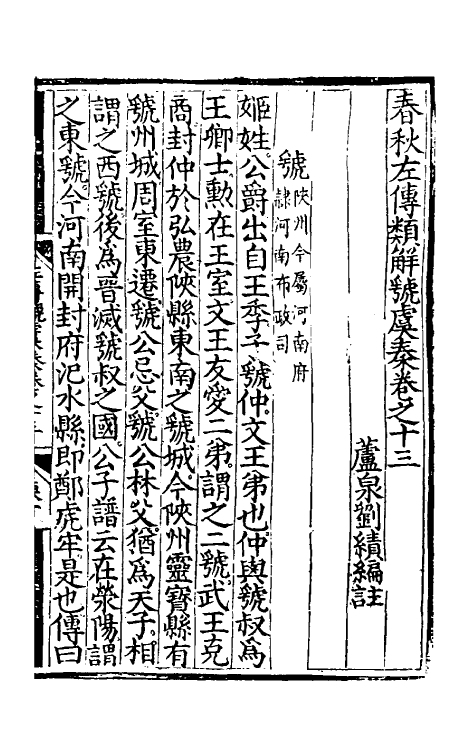 春秋左傳類解虢虞秦卷之十三
蘆泉劉績編註
虢陜州今屬河南府隸河南布政司
姬姓公爵出自王季子虢仲文王弟也仲與虢叔爲
王卿士勳在王室文王友愛二弟謂之二虢武王克
商封仲於弘農陜縣東南之虢城今陜州靈寶縣有
虢州城周室東遷虢公忌父虢公林父猶爲天子相
謂之西虢後爲晉滅虢叔之國公子譜云在滎陽謂
之東虢今河南開封府汜水縣即鄭虎牢是也傳曰